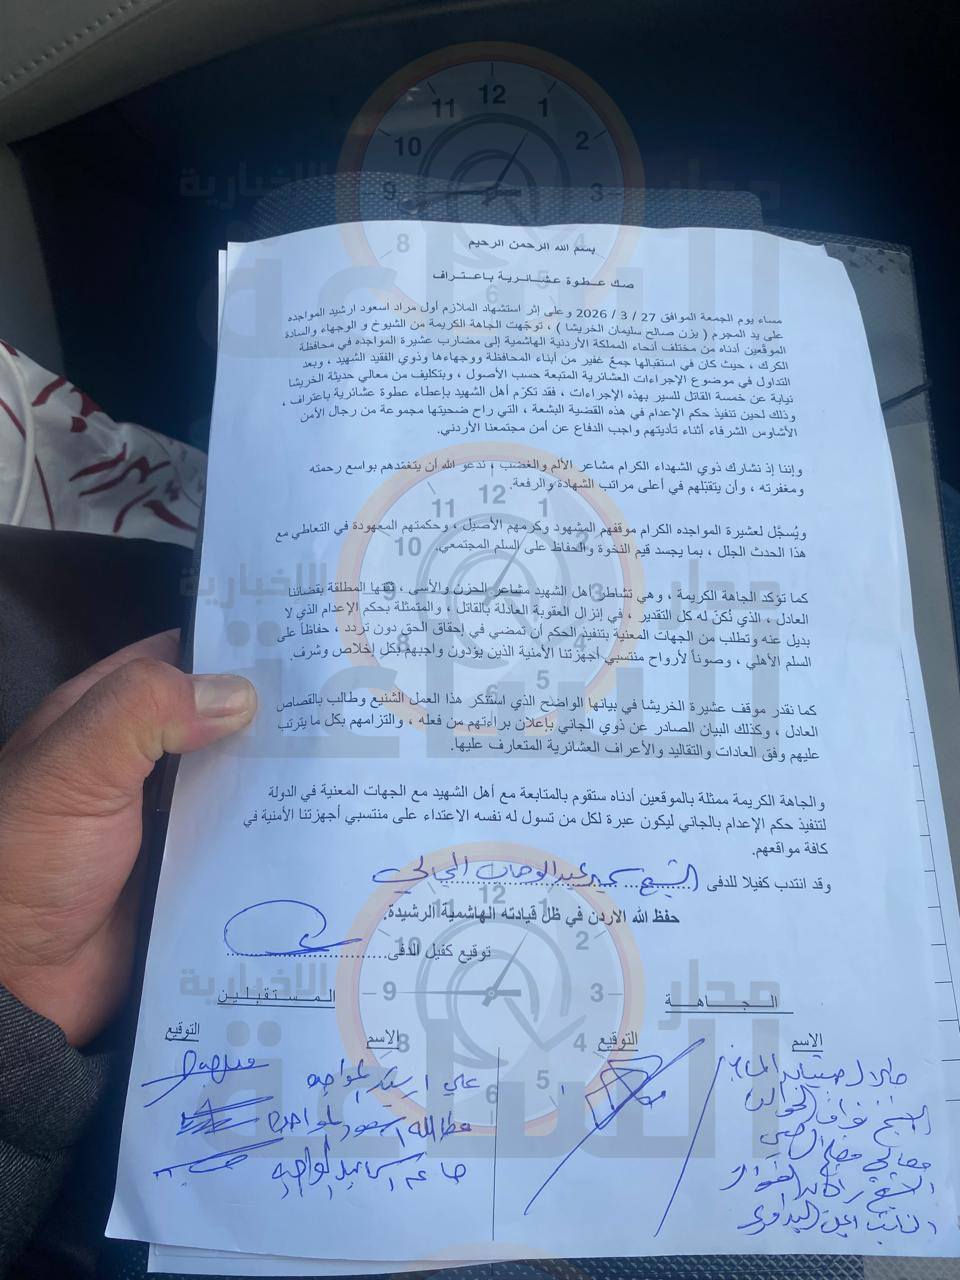 بسم الله الرحمن الرحيم
صك عـطـوة عـشـائـريـة بـاعـتـراف
مساء يوم الجمعة الموافق 27 / 3 / 2026 وعلى إثر استشهاد الملازم أول مراد اسعود ارشيد المواجده
على يد المجرم ( يزن صالح سليمان الخريشا ) ، توجّهت الجاهة الكريمة من الشيوخ و الوجهاء والسادة
الموقّعين أدناه من مختلف أنحاء المملكة الأردنية الهاشمية إلى مضارب عشيرة المواجده في محافظة
الكرك ، حيث كان في استقبالها جمعٌ غفير من أبناء المحافظة ووجهاءها وذوي الفقيد الشهيد ، وبعد
التداول في موضوع الإجراءات العشائرية المتبعة حسب الأصول ، وبتكليف من معالي حديثة الخريشا
نيابة عن خمسة القاتل للسير بهذه الإجراءات ، فقد تكرّم أهل الشهيد بإعطاء عطوة عشائرية باعتراف ،
وذلك لحين تنفيذ حكم الإعدام في هذه القضية البشعة ، التي راح ضحيتها مجموعة من رجال الأمن
الأشاوس الشرفاء أثناء تأديتهم واجب الدفاع عن أمن مجتمعنا الأردني.
وإننا إذ نشارك ذوي الشهداء الكرام مشاعر الألم والغضب ، ندعو الله أن يتغمّدهم بواسع رحمته
ومغفرته ، وأن يتقبّلهم في أعلى مراتب الشهادة والرفعة.
ويُسجَّل لعشيرة المواجده الكرام موقفهم المشهود وكرمهم الأصيل ، وحكمتهم المعهودة في التعاطي مع
هذا الحدث الجلل ، بما يجسد قيم النخوة والحفاظ على السلم المجتمعي.
كما تؤكد الجاهة الكريمة ، وهي تشاطر أهل الشهيد مشاعر الحزن والأسى ، ثقتها المطلقة بقضائنا
العادل ، الذي نُكنّ له كل التقدير ، في إنزال العقوبة العادلة بالقاتل ، والمتمثلة بحكم الإعدام الذي لا
بديل عنه وتطلب من الجهات المعنية بتنفيذ الحكم أن تمضي في إحقاق الحق دون تردد ، حفاظاً على
السلم الأهلي ، وصوناً لأرواح منتسبي أجهزتنا الأمنية الذين يؤدون واجبهم بكل إخلاص وشرف.
كما نقدر موقف عشيرة الخريشا في بيانها الواضح الذي استنكر هذا العمل الشنيع وطالب بالقصاص
العادل ، وكذلك البيان الصادر عن ذوي الجاني بإعلان براءتهم من فعله ، والتزامهم بكل ما يترتب
عليهم وفق العادات والتقاليد والأعراف العشائرية المتعارف عليها.
والجاهة الكريمة ممثلة بالموقعين أدناه ستقوم بالمتابعة مع أهل الشهيد مع الجهات المعنية في الدولة
لتنفيذ حكم الإعدام بالجاني ليكون عبرة لكل من تسول له نفسه الاعتداء على منتسبي أجهزتنا الأمنية في
كافة مواقعهم.
وقد انتدب كفيلا للدفى الشيخ عبدالوهاب المجالي
حفظ الله الاردن في ظل قيادته الهاشمية الرشيدة.
توقيع كفيل الدفى
الـجـاهـة
المـسـتـقـبـلـيـن
الإسم التوقيع
الإسم التوقيع
طلال
الشيخ
معالي
الشيخ
النائب
علي المواجده
عطاالله اسعود المواجده
المواجده
مدار الساعة الاخبارية